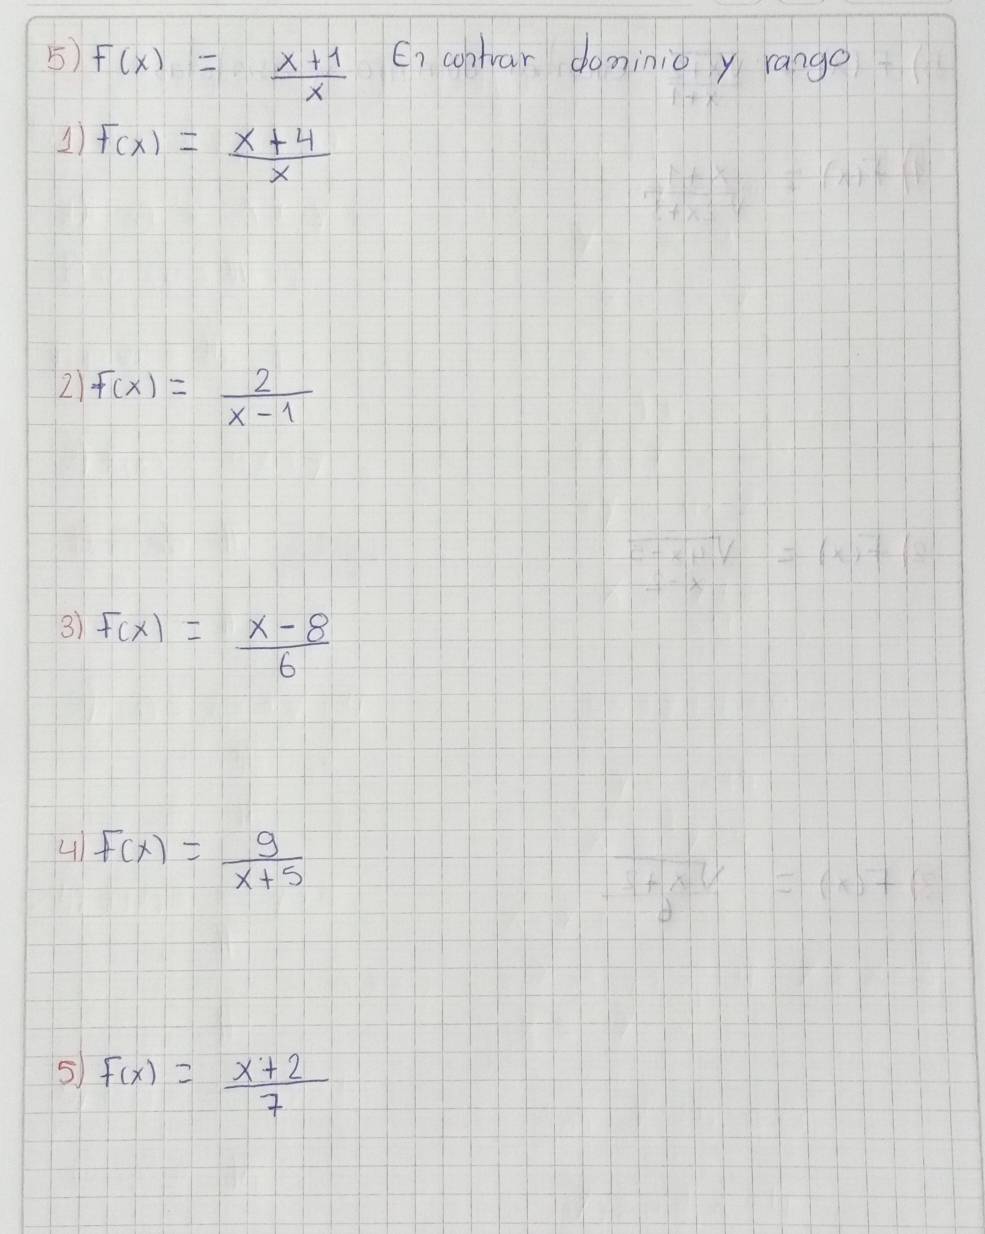 5) F(x) = x+1/x Encontrar dominio y rango
1) F(x) = x+4/x
2) F(x) = 2/x-1
3) F(x) = x-8/6
4) F(x) = 9/x+5
5) F(x) = x+2/7